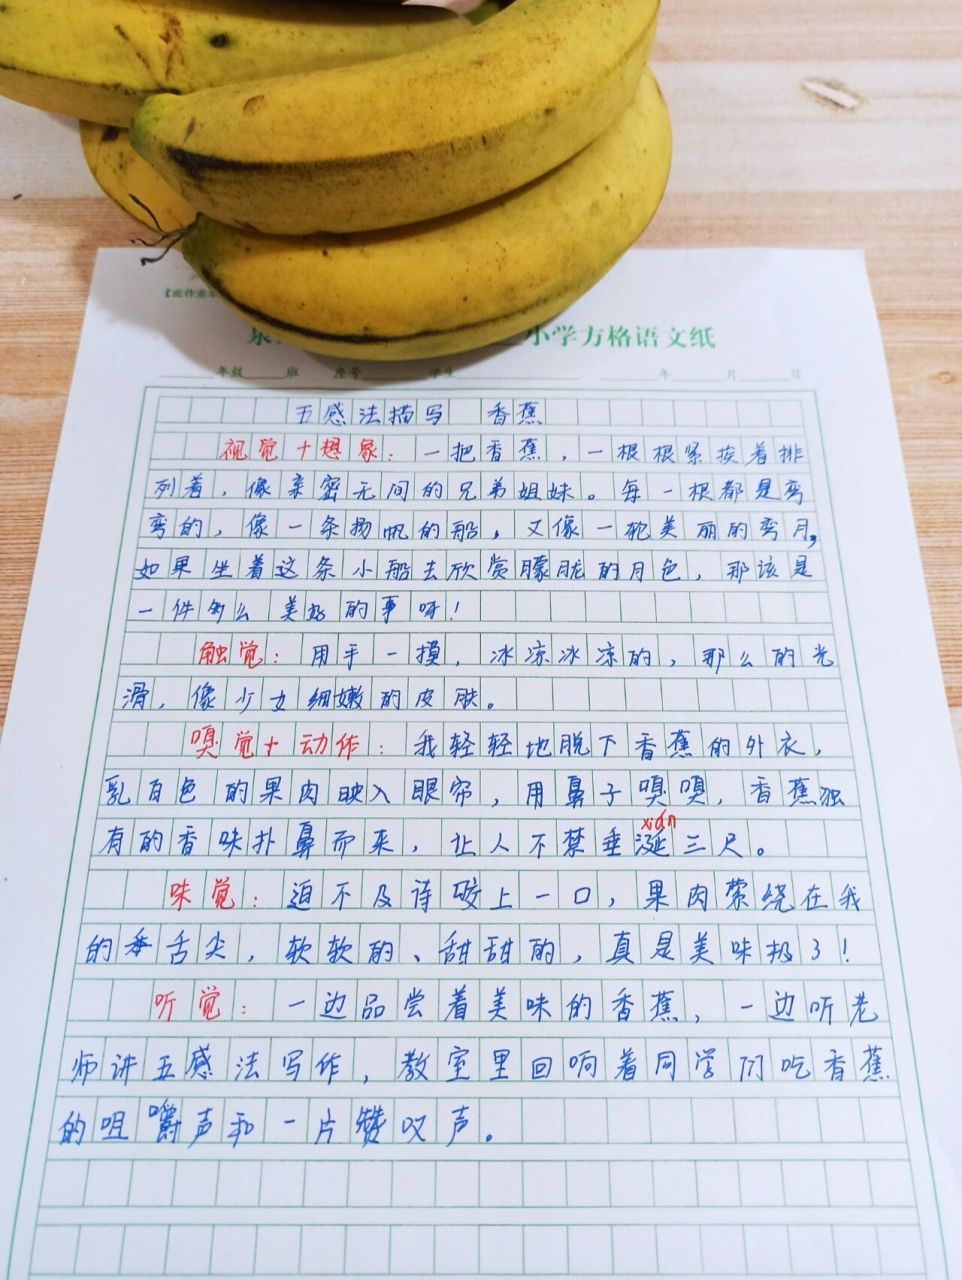 【此作业
小学方格语文纸
年级 班 座号 学生 年 月 日
五感法描写 香蕉
视觉+想象：一把香蕉，一根根紧挨着排
列着，像亲密无间的兄弟姐妹。每一根都是弯
弯的，像一条扬帆的船，又像一轮美丽的弯月，
如果坐着这条小船去欣赏朦胧的月色，那该是
一件多么美好的事呀！
触觉：用手一摸，冰凉冰凉的，那么的光
滑，像少女细嫩的皮肤。
嗅觉+动作：我轻轻地脱下香蕉的外衣，
乳白色的果肉映入眼帘，用鼻子嗅嗅，香蕉独
xián
有的香味扑鼻而来，让人不禁垂涎三尺。
味觉：迫不及待咬上一口，果肉萦绕在我
的舌尖，软软的、甜甜的，真是美味极了！
听觉：一边品尝着美味的香蕉，一边听老
师讲五感法写作，教室里回响着同学们吃香蕉
的咀嚼声和一片赞叹声。